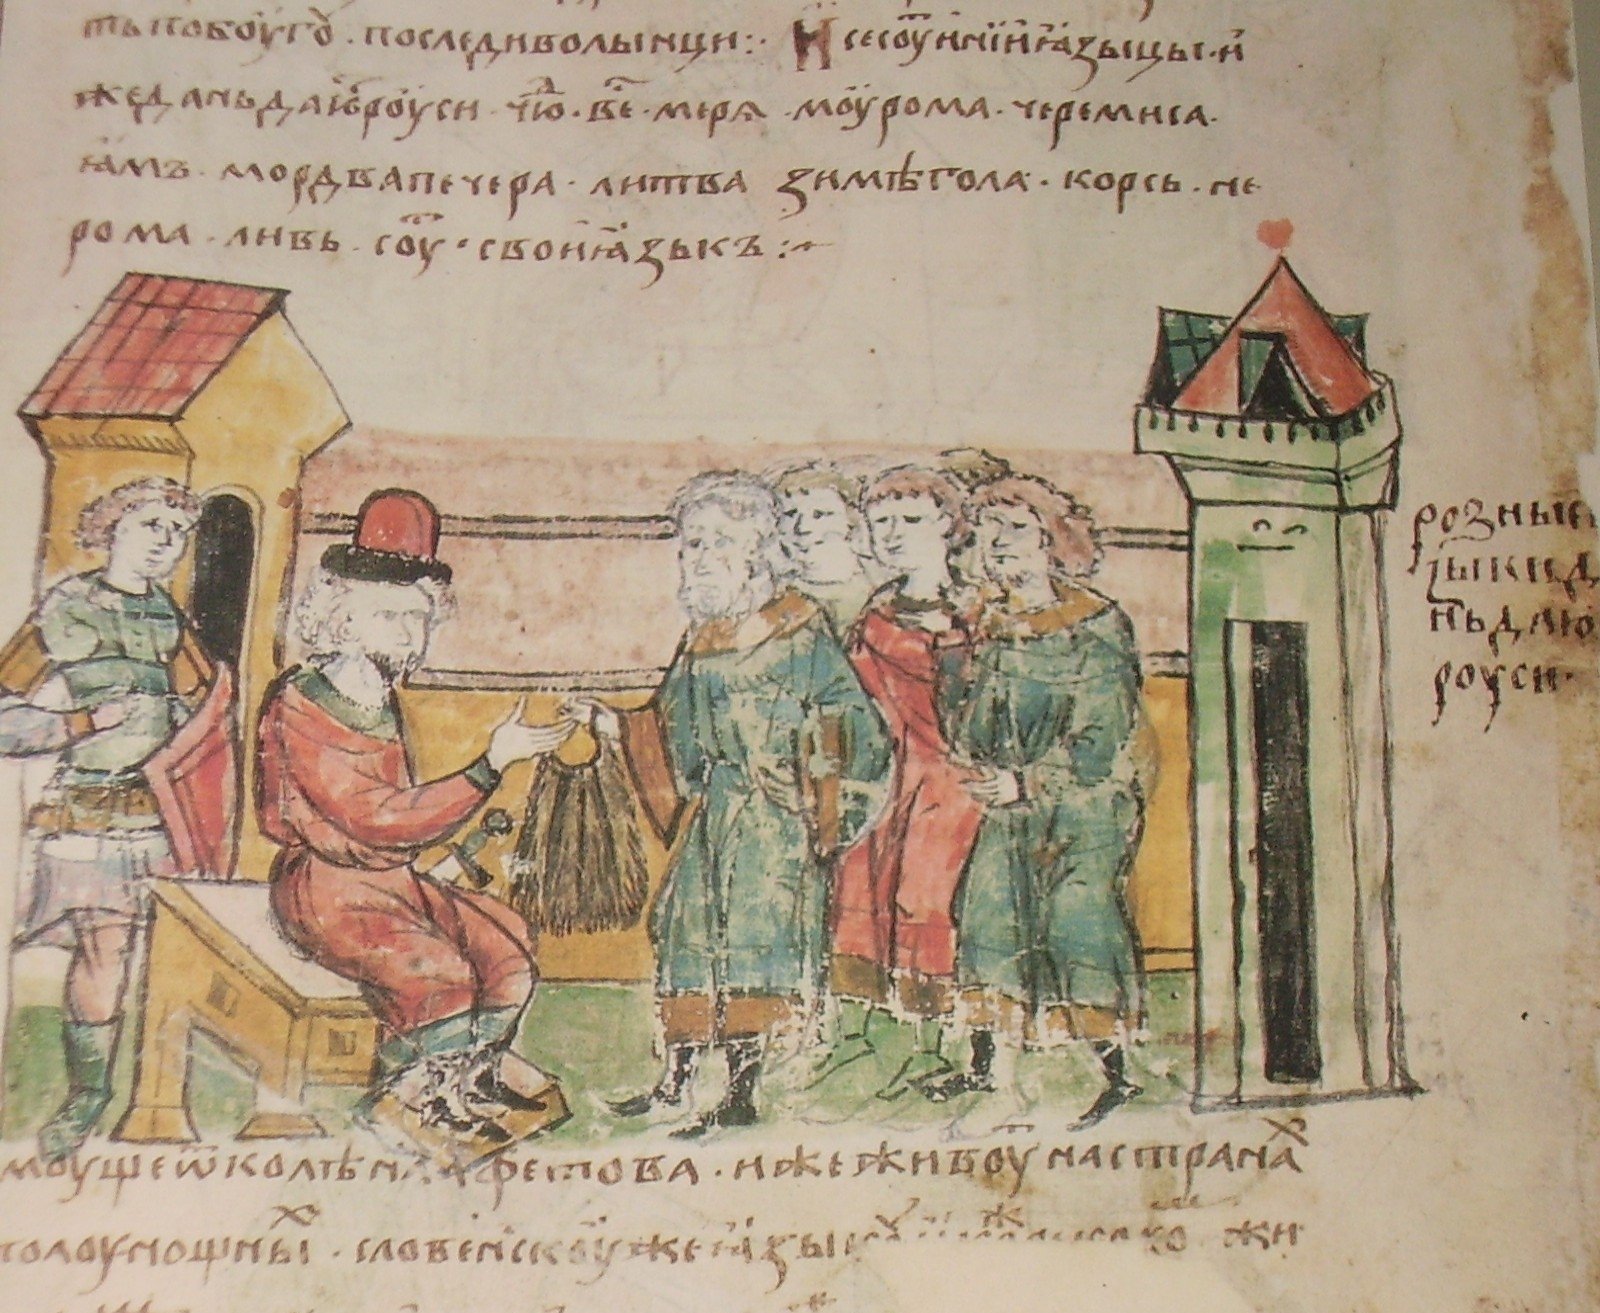 ть побоугоⷣ · последи волынци : · И се соуⷮ инїи ꙗзыцы · и
же дань даюⷮ роуси · чюⷣ · веⷭ · меря · моурома · черемиса ·
ꙗмъ · мордва печера · литва зимѣгола · корсь · не
рома · ливь · соуⷮ · свои ꙗзыкъ : ~
розные
ꙗзыки д
нь даю
роуси ·
моуще ѿ колѣна афетова · иже живоуⷮ на странаⷯ
полоунощныⷯ · словенскоу же ꙗзыкоу жи